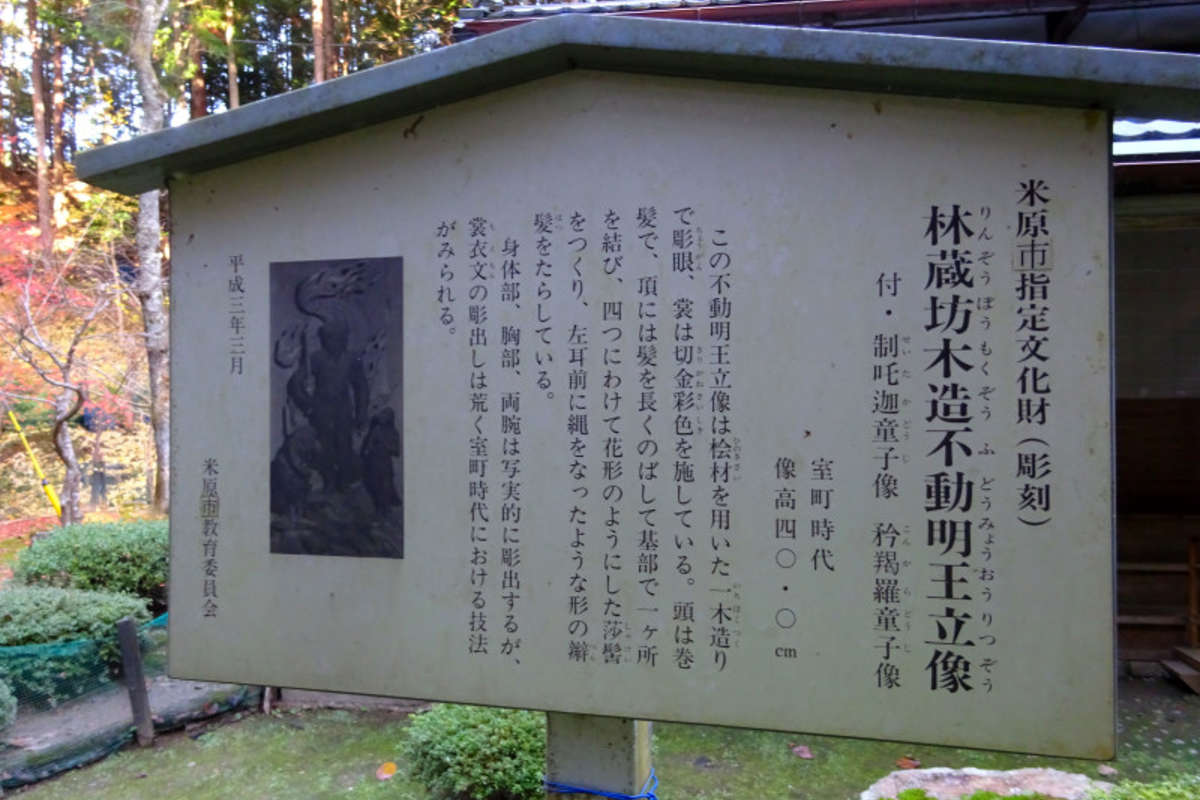 米原市指定文化財(彫刻)
林蔵坊木造不動明王立像
りんぞうぼうもくぞうふどうみょうおうりつぞう
付・制吒迦童子像 矜羯羅童子像
せいたかどうじ こんからどうじ
室町時代
像高四〇・〇cm
この不動明王立像は桧材を用いた一木造り
で彫眼、裳は切金彩色を施している。頭は巻
髪で、頂には髪を長くのばして基部で一ヶ所
を結び、四つにわけて花形のようにした莎髻
をつくり、左耳前に縄をなったような形の辮
髪をたらしている。
身体部、胸部、両腕は写実的に彫出するが、
裳衣文の彫出しは荒く室町時代における技法
がみられる。
平成三年三月
米原市教育委員会